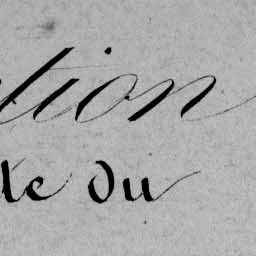 tion
te du